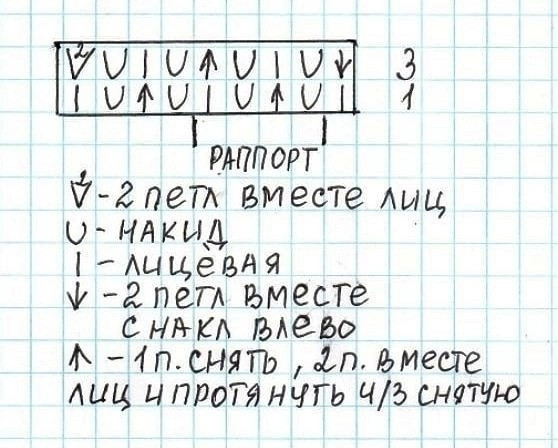 2
V U | U ↑ U | U ↓ 3
| U ↑ U | U ↑ U | 1
РАППОРТ
2
V - 2 ПЕТЛ ВМЕСТЕ ЛИЦ
U - НАКИД
| - ЛИЦЁВАЯ
↓ - 2 ПЕТЛ ВМЕСТЕ
С НАКЛ ВЛЕВО
↑ - 1 П. СНЯТЬ, 2 П. ВМЕСТЕ
ЛИЦ И ПРОТЯНУТЬ Ч/З СНЯТУЮ